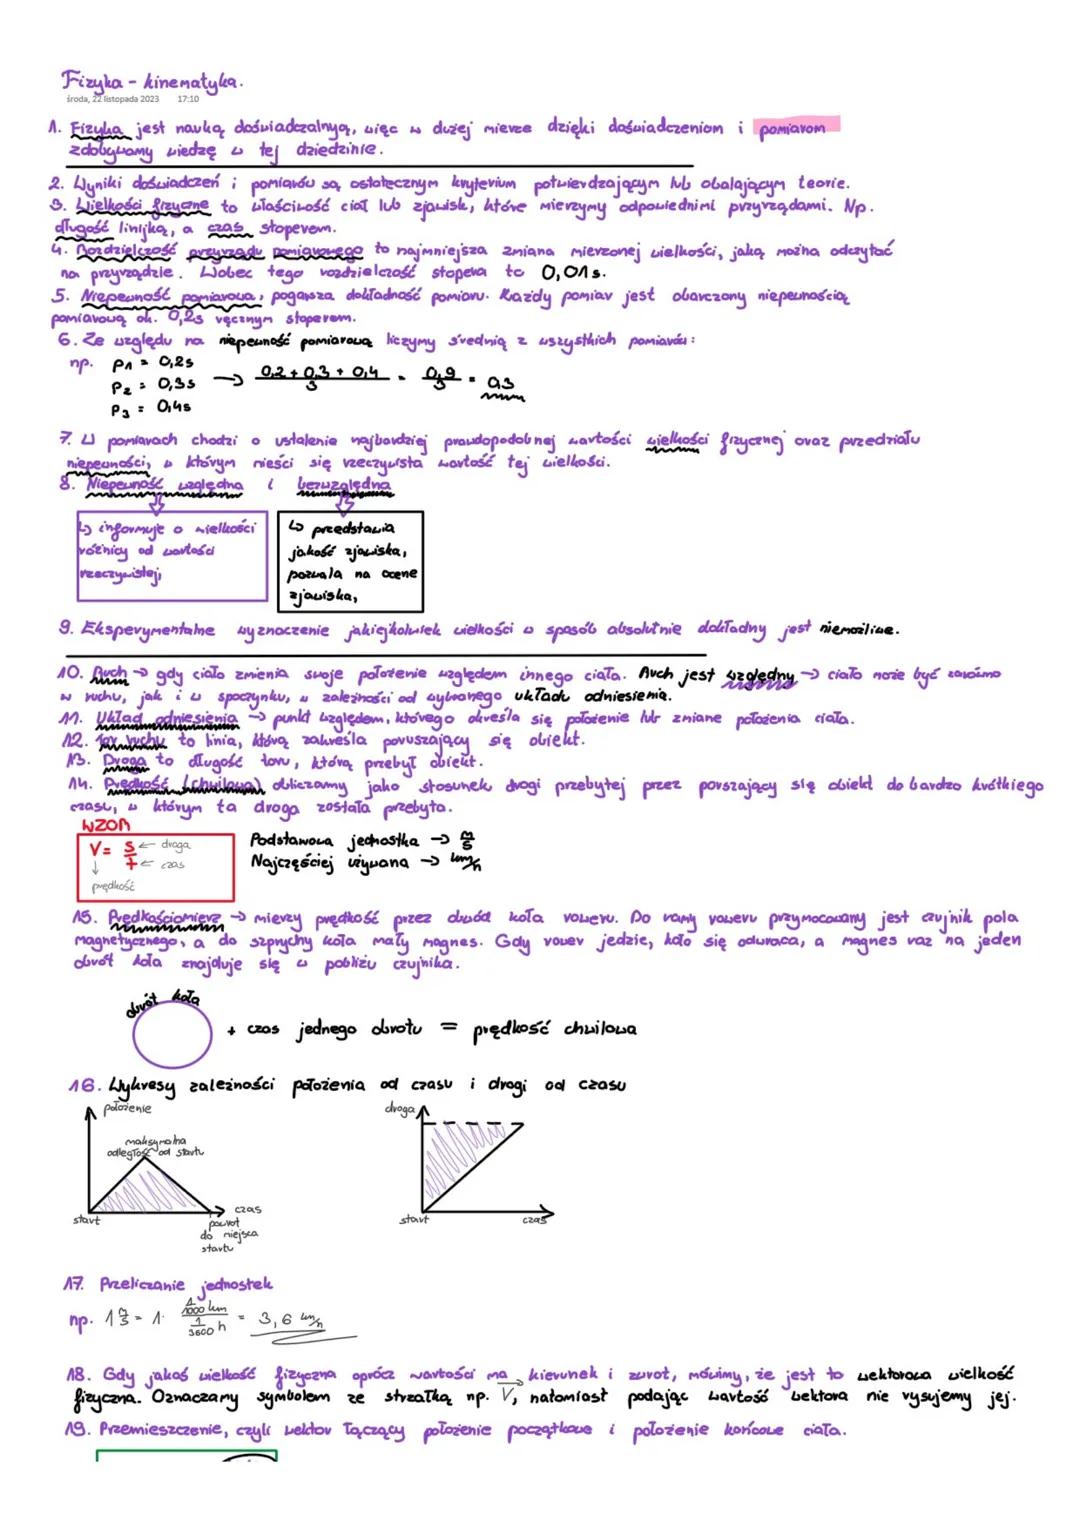 Fizyka - kinematyka.
środa, 22 listopada 2023 17:10
1. Fizyka jest nauką doświadczalnyą, więc w dużej mierze dzięki doświadczeniom i pomiarom
zdobywamy wiedzę w tej dziedzinie.
2. Wyniki doświadczeń i pomiarów są ostatecznym kryterium potwierdzającym lub obalającym teorie.
3. Wielkości fizyczne to właściwość ciał lub zjawisk, które mierzymy odpowiednimi przyrządami. Np.
długość linijką, a czas stoperem.
4. Rozdzielczość przyrządu pomiarowego to najmniejsza zmiana mierzonej wielkości, jaką można odczytać
na przyrządzie. Wobec tego rozdzielczość stopera to 0,01s.
5. Niepewność pomiarowa, pogarsza dokładność pomiaru. Każdy pomiar jest obarczony niepewnością
pomiarową ok. 0,2s ręcznym stoperem.
6. Ze względu na niepewność pomiarową liczymy średnią z wszystkich pomiarów:
np. P1 = 0,2s
P2 = 0,3s → 0,2 + 0,3 + 0,4 / 3 = 0,9 / 3 = 0,3
P3 = 0,4s
7. W pomiarach chodzi o ustalenie najbardziej prawdopodobnej wartości wielkości fizycznej oraz przedziału
niepewności, w którym mieści się rzeczywista wartość tej wielkości.
8. Niepewność względna i bezwzględna
↳ informuje o wielkości
różnicy od wartości
rzeczywistej,
↳ przedstawia
jakość zjawiska,
pozwala na ocene
zjawiska,
9. Eksperymentalne wyznaczenie jakiejkolwiek wielkości w sposób absolutnie dokładny jest niemożliwe.
10. Ruch → gdy ciało zmienia swoje położenie względem innego ciała. Ruch jest względny → ciało może być zarówno
w ruchu, jak i w spoczynku, w zależności od wybranego układu odniesienia.
11. Układ odniesienia → punkt względem, którego określa się położenie lub zmiane położenia ciała.
12. Tor ruchu to linia, którą zakreśla poruszający się obiekt.
13. Droga to długość toru, którą przebył obiekt.
14. Prędkość (chwilowa) obliczamy jako stosunek drogi przebytej przez porszający się obiekt do bardzo krótkiego
czasu, w którym ta droga została przebyta.
WZÓR
V = s / t
← droga
← czas
↓
prędkość
Podstawowa jednostka → m/s
Najczęściej używana → km/h
15. Prędkościomierz → mierzy prędkość przez obwód koła roweru. Do ramy roweru przymocowany jest czujnik pola
magnetycznego, a do szprychy koła mały magnes. Gdy rower jedzie, koło się odwraca, a magnes raz na jeden
obrót koła znajduje się w pobliżu czujnika.
obrót koła
+ czas jednego obrotu = prędkość chwilowa
16. Wykresy zależności położenia od czasu i drogi od czasu
położenie
maksymalna
odległość od startu
start
czas
powrot
do miejsca
startu
droga
start
czas
17. Przeliczanie jednostek
np. 1 m/s = 1 · 1/1000 km / 1/3600 h = 3,6 km/h
18. Gdy jakaś wielkość fizyczna oprócz wartości ma kierunek i zwrot, mówimy, że jest to wektorowa wielkość
fizyczna. Oznaczamy symbolem ze strzałką np. V⃗, natomiast podając wartość wektora nie rysujemy jej.
19. Przemieszczenie, czyli wektor łączący położenie początkowe i położenie końcowe ciała.